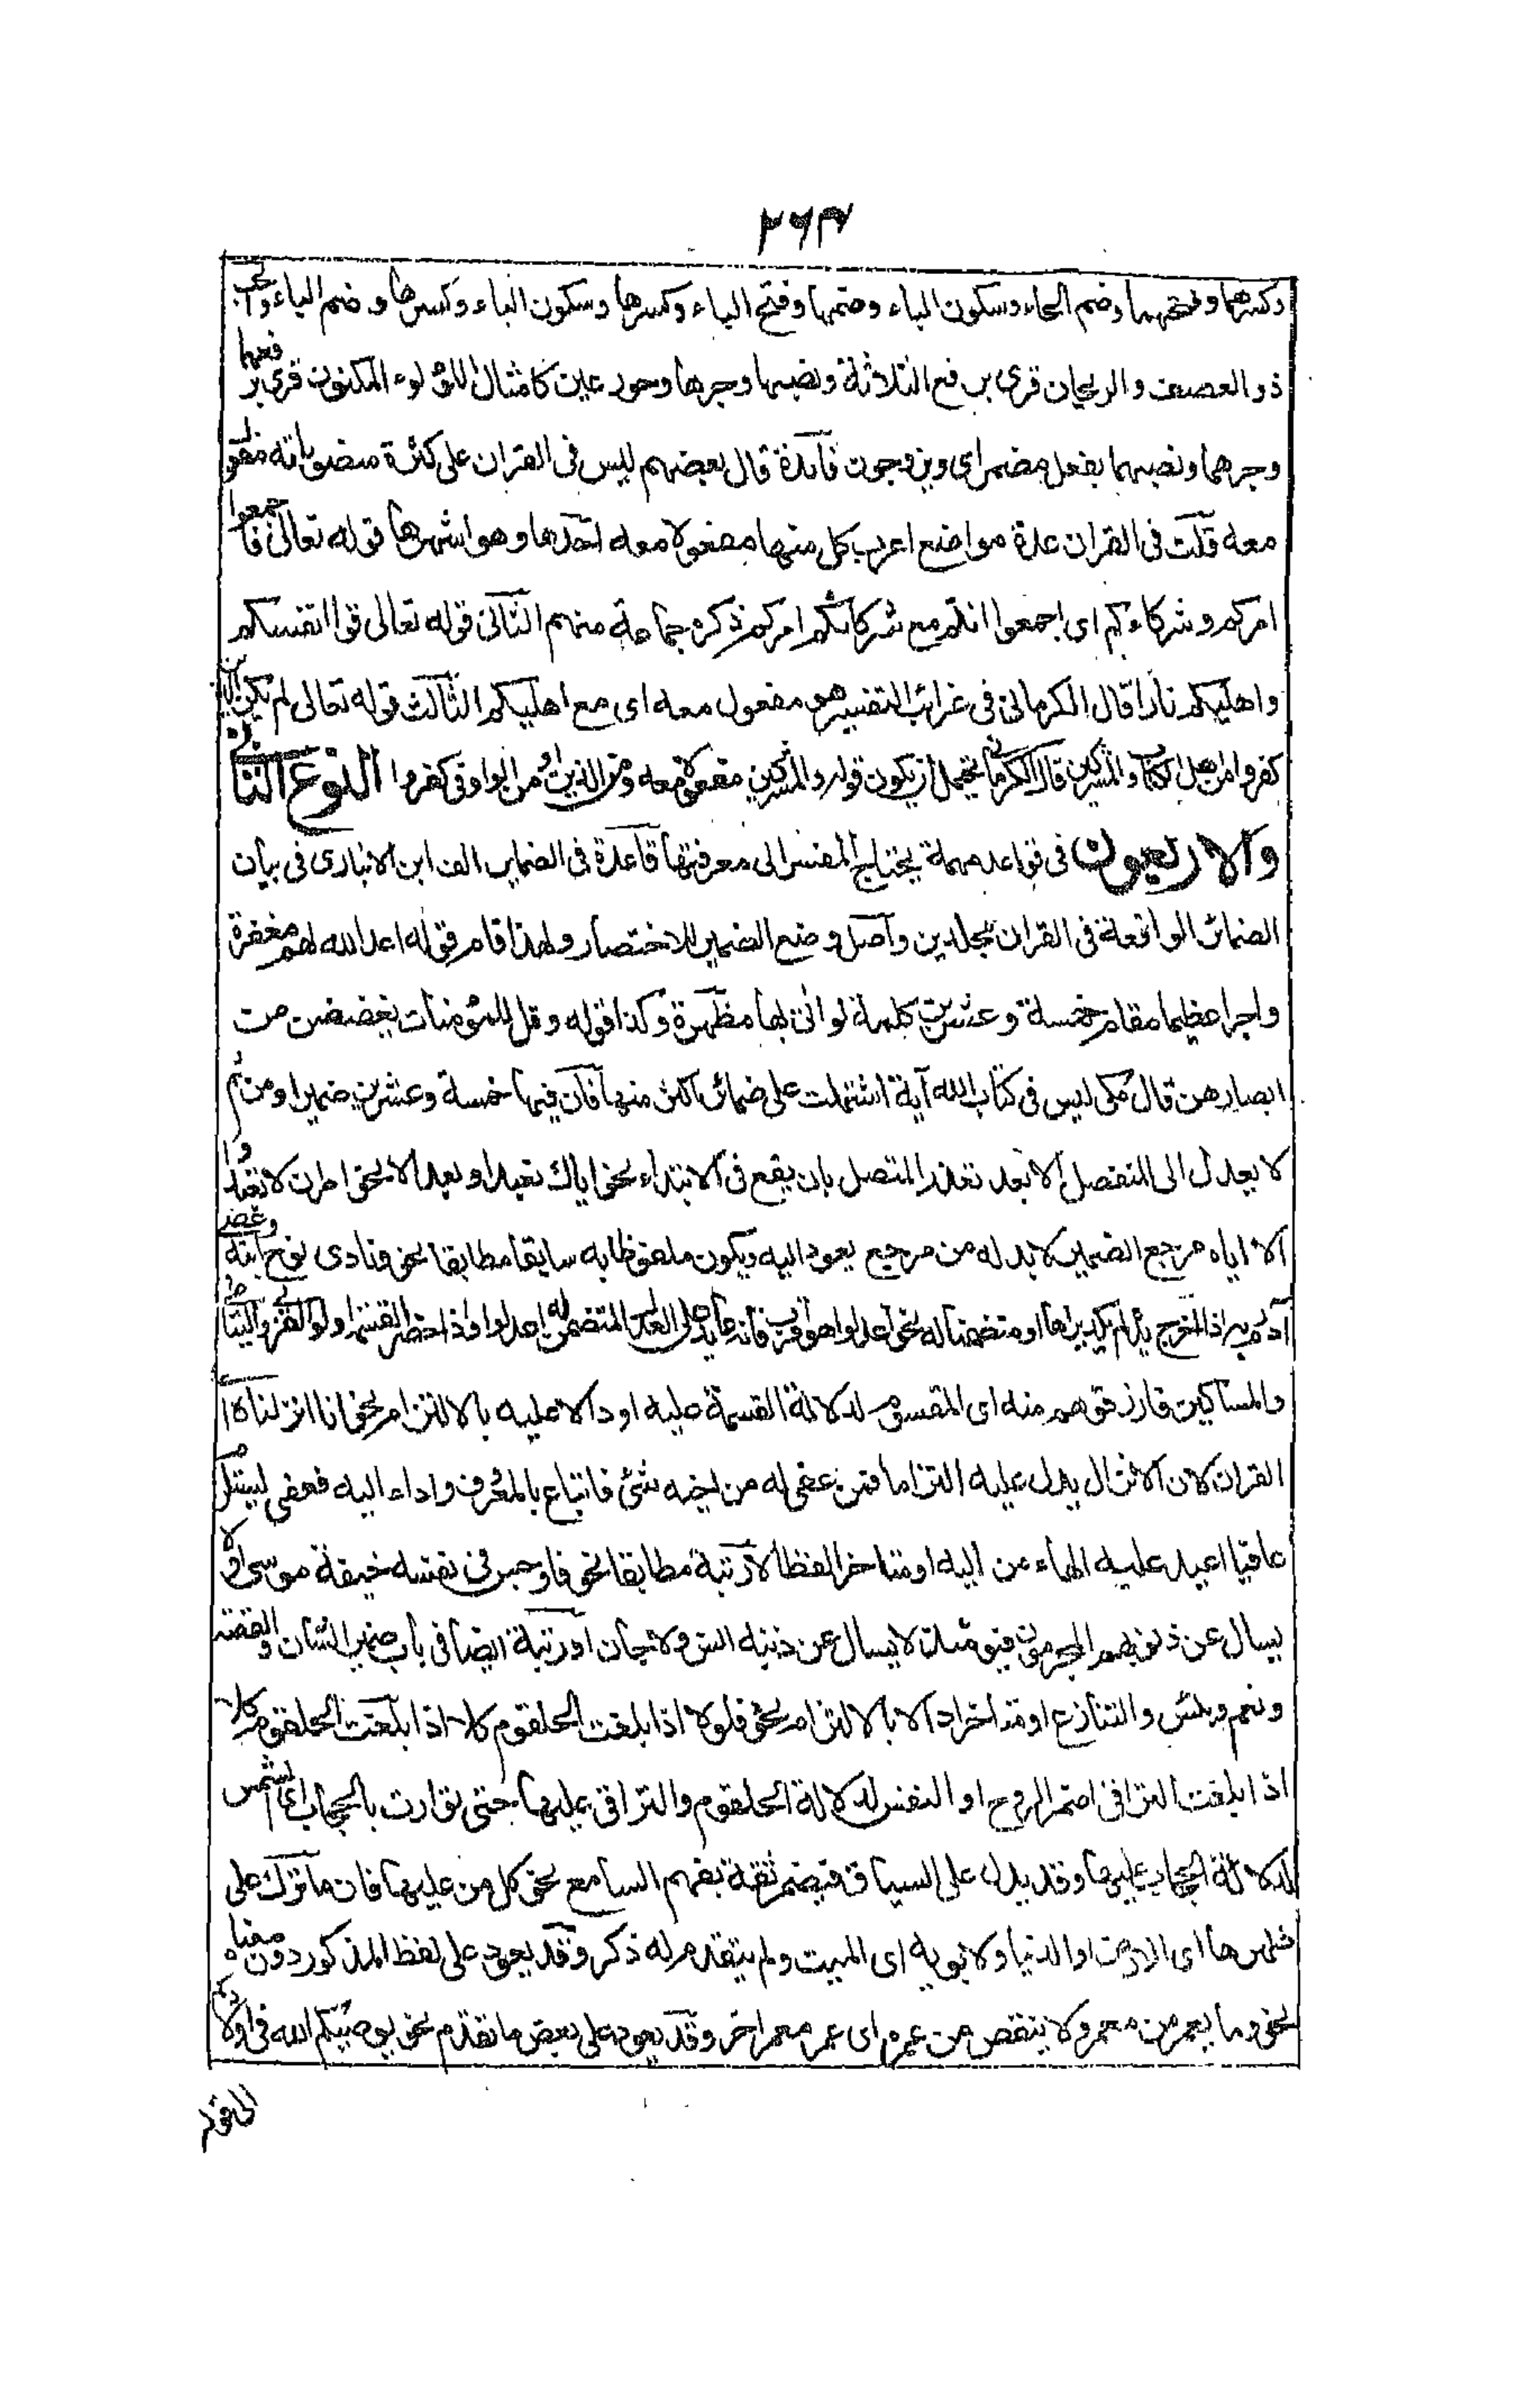 ٢٦٣
وكسرهما وفتحهما وضم الحاء وسكون الباء وضمها وفتح الباء وكسرها وسكون الباء وكسرها وضم الباء والحب
ذو العصف والريحان قرى برفع الثلاثة ونصبها وجرها وحور عين كامثال اللؤلوء المكنون قرى برفعهما
وجرهما ونصبهما بفعل مضمر اى ويزوجون فائدة قال بعضهم ليس فى القران على كثرة منصوباته مفعول
معه قلت فى القران عدة مواضع اعرب كل منها مفعولا معه احدها وهو اشهرها قوله تعالى فاجمعوا
امركم وشركاءكم اى اجمعوا انتم مع شركائكم امركم ذكره جماعة منهم الثانى قوله تعالى قوا انفسكم
واهليكم نارا قال الكرمانى فى غرائب التفسير هو مفعول معه اى مع اهليكم الثالث قوله تعالى لم يكن الذين
كفروا من اهل الكتاب والمشركين قال الكرمانى يحتمل ان يكون قوله والمشركين مفعولا معه من الذين او من الواو فى كفروا النوع الثانى
والاربعون فى قواعد مهمة يحتاج المفسر الى معرفتها قاعدة فى الضماير الف ابن الانبارى فى بيان
الضمائر الواقعة فى القران مجلدين واصل وضع الضمير للاختصار ولهذا قام قوله اعد الله لهم مغفرة
واجرا عظيما مقام خمسة وعشرين كلمة لو اتى بها مظهرة وكذا قوله وقل للمؤمنات يغضضن من
ابصارهن قال مكى ليس فى كتاب الله آية اشتملت على ضمائر اكثر منها فان فيها خمسة وعشرين ضميرا ومن ثم
لا يعدل الى المنفصل الا بعد تعذر المتصل بان يقع فى الابتداء نحو اياك نعبد او بعد الا نحو امر ان لا تعبدوا
الا اياه مرجع الضمير لا بد له من مرجع يعود اليه ويكون ملفوظا به سابقا مطابقا نحو ونادى نوح ابنه وعصى
آدم ربه اذا اخرج يده لم يكد يراها او متضمنا له نحو اعدلوا هو اقرب فانه عايد على العدل المتضمن له اعدلوا واذا حضر القسمة اولوا القربى واليتامى
والمساكين فارزقوهم منه اى المقسوم لدلالة القسمة عليه او دالا عليه بالالتزام نحو انا انزلناه اى
القران لان الانزال يدل عليه التزاما فمن عفى له من اخيه شئ فاتباع بالمعروف واداء اليه فعفى يستلزم
عافيا اعيد عليه الهاء من اليه او متاخر الفظا لا رتبة مطابقا نحو فاوجس فى نفسه خيفة موسى ولا
يسال عن ذنوبهم المجرمون فيومئذ لا يسال عن ذنبه انس ولا جان او رتبة ايضا فى باب ضمير الشان والقصة
ونعم وبئس والتنازع او متاخرا دالا بالالتزام نحو فلولا اذا بلغت الحلقوم كلا اذا بلغت الحلقوم كلا
اذا بلغت التراقى اضمر الروح او النفس لدلالة الحلقوم والتراقى عليها حتى توارت بالحجاب اى الشمس
لدلالة الحجاب عليها وقد يدل على السياق فيضمر ثقة بفهم السامع نحو كل من عليها فان ما ترك على
ظهرها اى الارض او الدنيا ولابويه اى الميت ولم يتقدم له ذكر وقد يعود على لفظ المذكور دون معناه
نحو وما يعمر من معمر ولا ينقص من عمره اى عمر معمر اخر وقد يعود على بعض ما تقدم نحو يوصيكم الله فى اولادكم